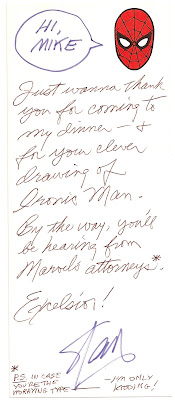 HI,
MIKE
Just wanna thank
you for coming to
my dinner — &
for your clever
drawing of
Ironic Man.
By the way, you'll
be hearing from
Marvel's attorneys*.
Excelsior!
Stan
*
P.S. IN CASE
YOU'RE THE
WORRYING TYPE
—I'M ONLY
KIDDING!